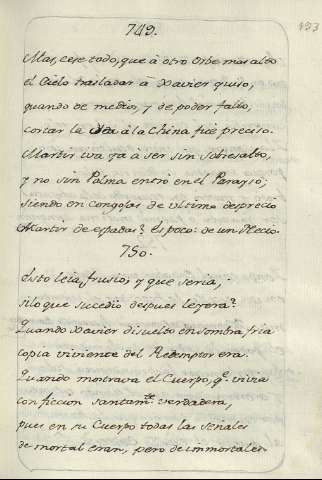 749.
193
Mas, cese todo, que à otro Orbe mas alto
el Cielo trasladar à Xavier quiso,
quando de medios, y de poder falto,
cortar la idea à la China fue preciso.
Martir iva ya à ser sin sobresalto,
y no sin Palma entrò en el Parayso;
siendo en congojas de ultimo desprecio
Martir de espadas? Es poco: de un Necio.
750.
Esto leìa, frusio; y que seria,
si lo que sucediò despues leyera?
Quando Xavier disuelto en sombra fria
copia viviente del Redemptor era.
Quando mostrava el Cuerpo, q.e vivia
con ficcion santam.te verdadera,
pues en su Cuerpo todas las señales
de mortal eran, pero de inmortales